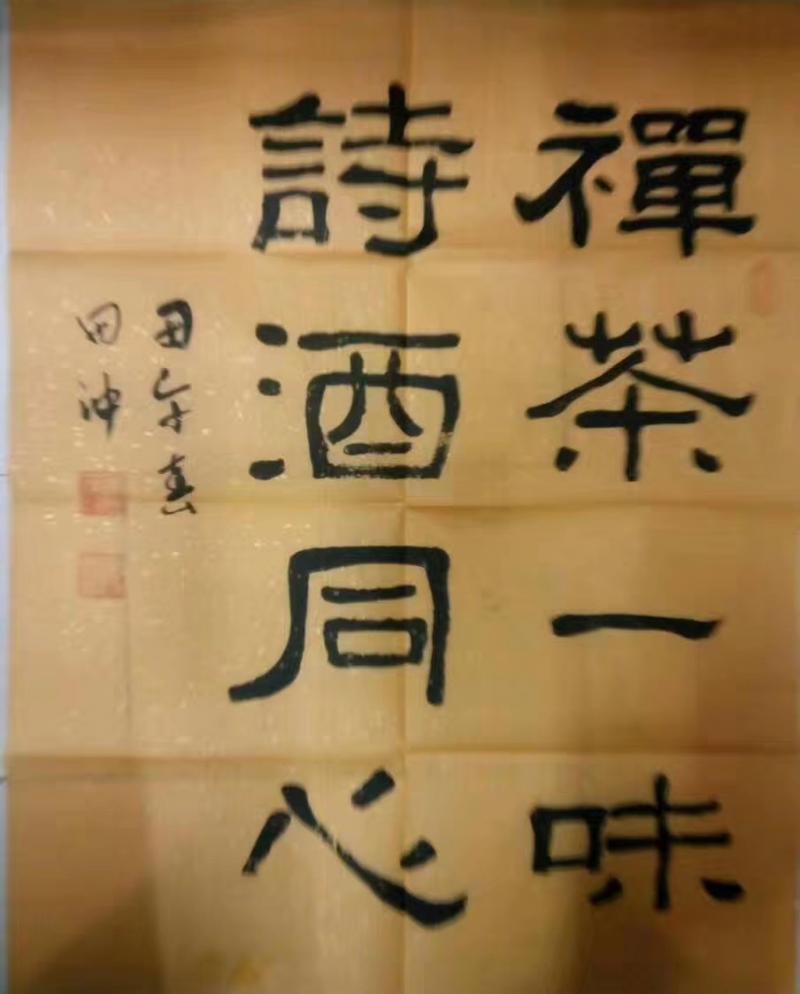 禪茶一味
詩酒同心
甲午春
田沖